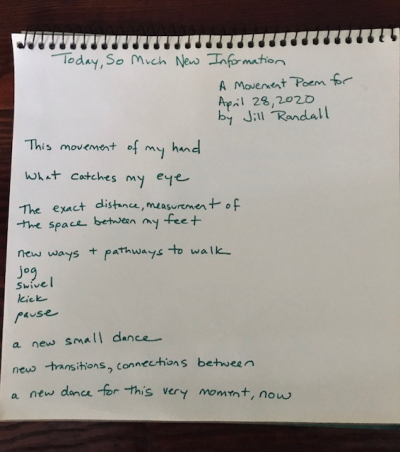 Today, So Much New Information
A Movement Poem for
April 28, 2020
by Jill Randall
This movement of my hand
What catches my eye
The exact distance, measurement of
the space between my feet
new ways + pathways to walk
jog
swivel
kick
pause
a new small dance
new transitions, connections between
a new dance for this very moment, now